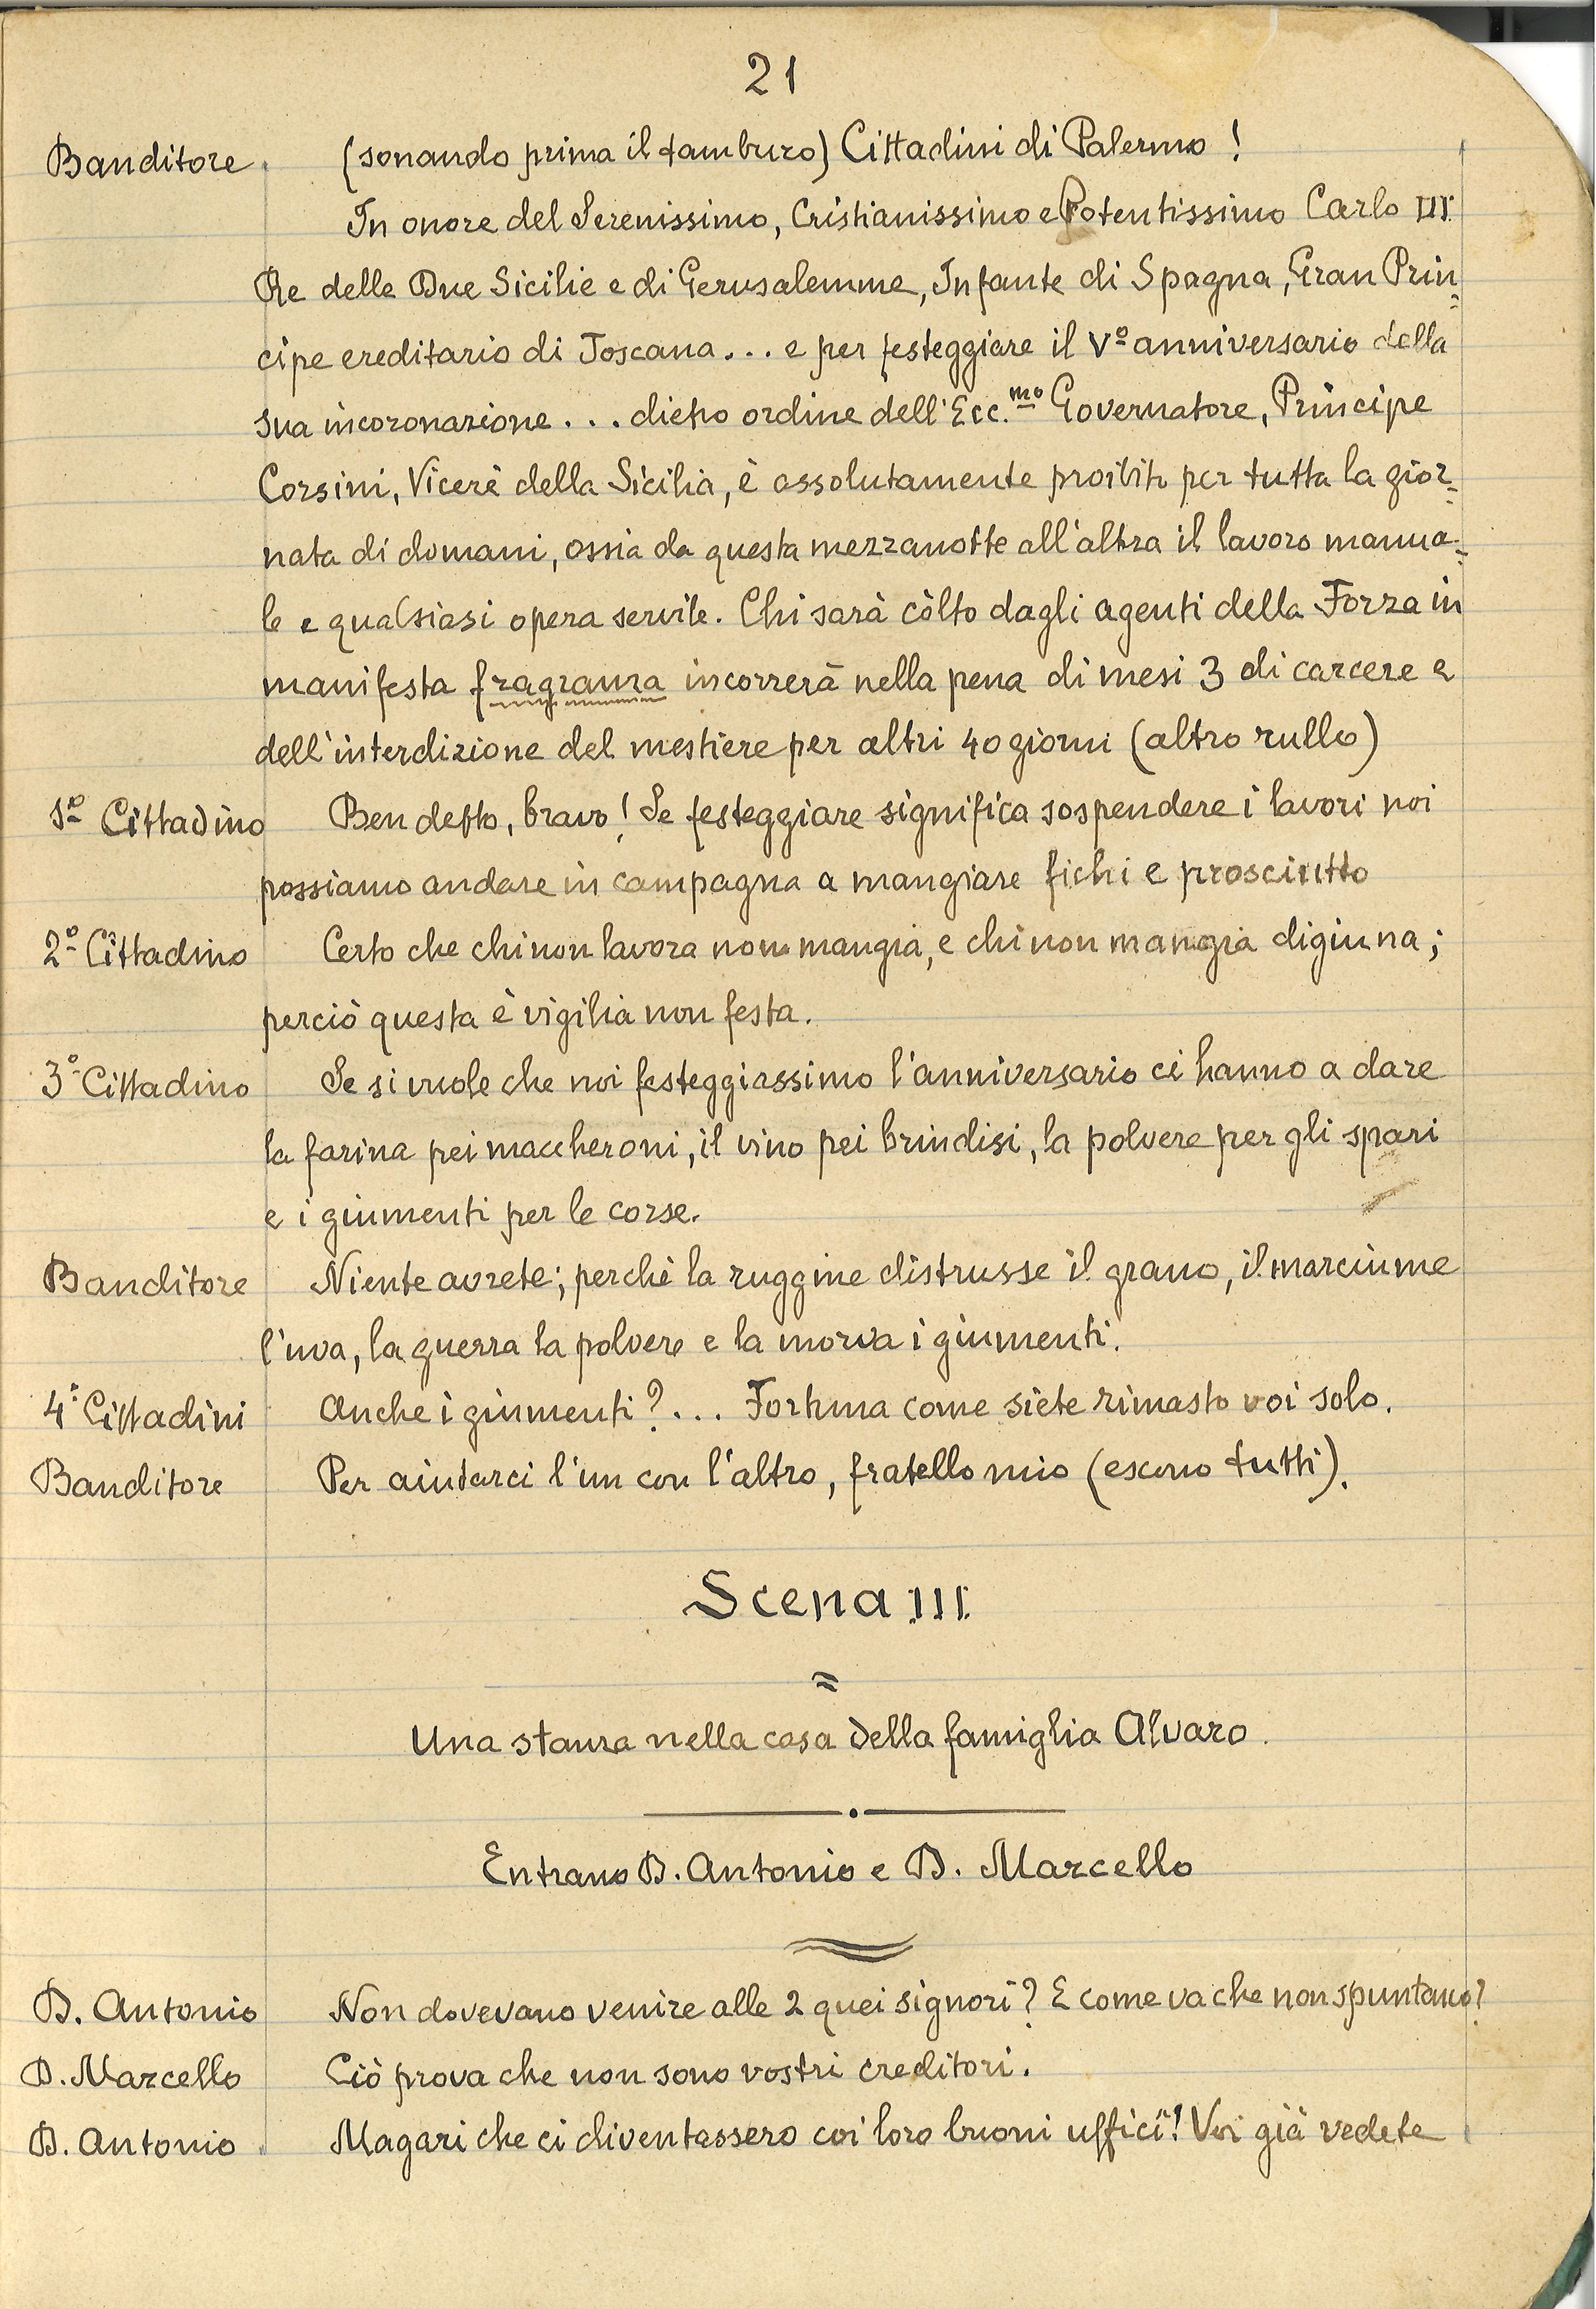 21
Banditore (sonando prima il tamburo) Cittadini di Palermo !
In onore del Serenissimo, Cristianissimo e Potentissimo Carlo III
Re delle Due Sicilie e di Gerusalemme, Infante di Spagna, Gran Prin=
cipe ereditario di Toscana... e per festeggiare il Vº anniversario della
sua incoronazione... dietro ordine dell'Ecc.mo Governatore, Principe
Corsini, Vicerè della Sicilia, è assolutamente proibito per tutta la gior=
nata di domani, ossia da questa mezzanotte all'altra il lavoro manua=
le e qualsiasi opera servile. Chi sarà còlto dagli agenti della Forza in
manifesta fragranza incorrerà nella pena di mesi 3 di carcere e
dell'interdizione del mestiere per altri 40 giorni (altro rullo)
1º Cittadino Ben detto, bravo! Se festeggiare significa sospendere i lavori noi
possiamo andare in campagna a mangiare fichi e prosciutto
2º Cittadino Certo che chi non lavora non mangia, e chi non mangia digiuna;
perciò questa è vigilia non festa.
3º Cittadino Se si vuole che noi festeggiassimo l'anniversario ci hanno a dare
la farina pei maccheroni, il vino pei brindisi, la polvere per gli spari
e i giumenti per le corse.
Banditore Niente avrete; perchè la ruggine distrusse il grano, il marciume
l'uva, la guerra la polvere e la morva i giumenti.
4º Cittadini Anche i giumenti?... Fortuna come siete rimasto voi solo.
Banditore Per aiutarci l'un con l'altro, fratello mio (escono tutti).
Scena III
=
Una stanza nella casa della famiglia Alvaro.
Entrano D. Antonio e D. Marcello
D. Antonio Non dovevano venire alle 2 quei signori? E come va che non spuntano?
D. Marcello Ciò prova che non sono vostri creditori.
D. Antonio Magari che ci diventassero coi loro buoni ufficî! Voi già vedete